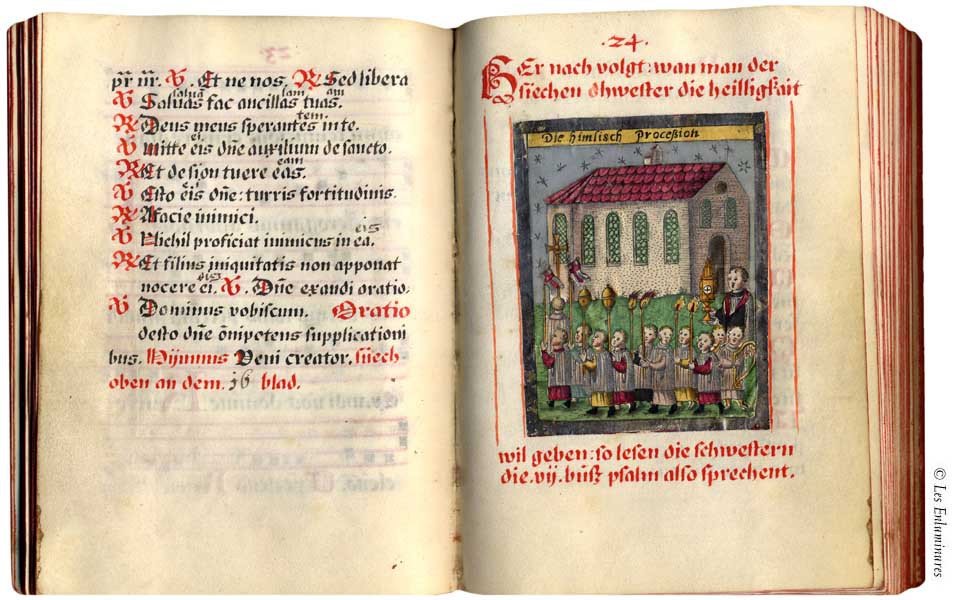 23
pr̃ nr̃. V. Et ne nos. R Sed libera
salua lam am
V Saluas fac ancillas tuas.
tem
R Deus meus sperantes in te.
ei
V Mitte eis dñe auxilium de sancto.
eam
R Et de sion tuere eas.
ei
V Esto eis dñe: turris fortitudinis.
R A facie inimici.
eis
V Nichil proficiat inimicus in ea.
R Et filius iniquitatis non apponat
eis
nocere ei. V. Dñe exaudi oratio.
V Dominus vobiscum. Oratio
desto dñe om̃ipotens supplicationi
bus. Hijmnus Veni creator. sůech
oben an dem. 16 blad.
.24.
HEr nach volgt: wan man der
siechen schwester die heilligkait
Die himlisch Proceßion
wil geben: so lesen die schwestern
die. vij. bůß psalm also sprechent.
© Les Enluminures